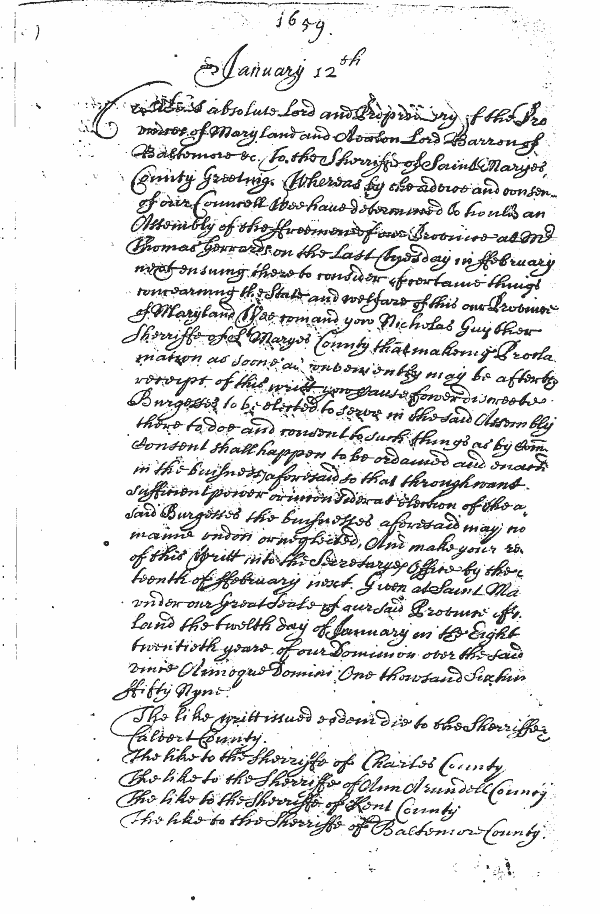 1659.
January 12th
absolute Lord and Proprietary of the Pro
vinces of Maryland and Avalon Lord Barron of
Baltemore &c. To the Sherriffe of Saint Maryes
County Greeting. Whereas by the advice and consen
of our Councell Wee have determined to hould an
Assembly of the ffreemen of our Province at Mr
Thomas Gerrards on the Last Tuesday in ffebruary
next ensuing there to consider of certaine things
concearning the State and welfare of this our Province
of Maryland Wee comand you Nicholas Guyther
Sherriffe of St Maryes County that making Procla
mation as soone as conveniently may be after the
receipt of this writt you cause fower discreete
Burgesses to be elected to serve in the said Assembly
there to doe and consent to such things as by Com
Consent shall happen to be ordained and enacte
in the buisness aforesaid so that through want
sufficient power or inconsiderat election of the a
said Burgesses the buisnesses aforesaid may no
maine undon or neglected. And make your re
of this Writt into the Secretaryes Office by the
teenth of ffebruary next. Given at Saint Ma
under our Great Seale of our said Province of
land the twelth day of January in the Eight
twentieth yeare of our Dominion over the said
vince Annoque Domini One thousand Six hun
ffifty Nyne
The like writt issued eodem die to the Sherriffe
Calvert County.
The like to the Sherriffe of Charles County
The like to the Sherriffe of Ann Arundell County
The like to the Sherriffe of Kent County
The like to the Sherriffe of Baltemore County.